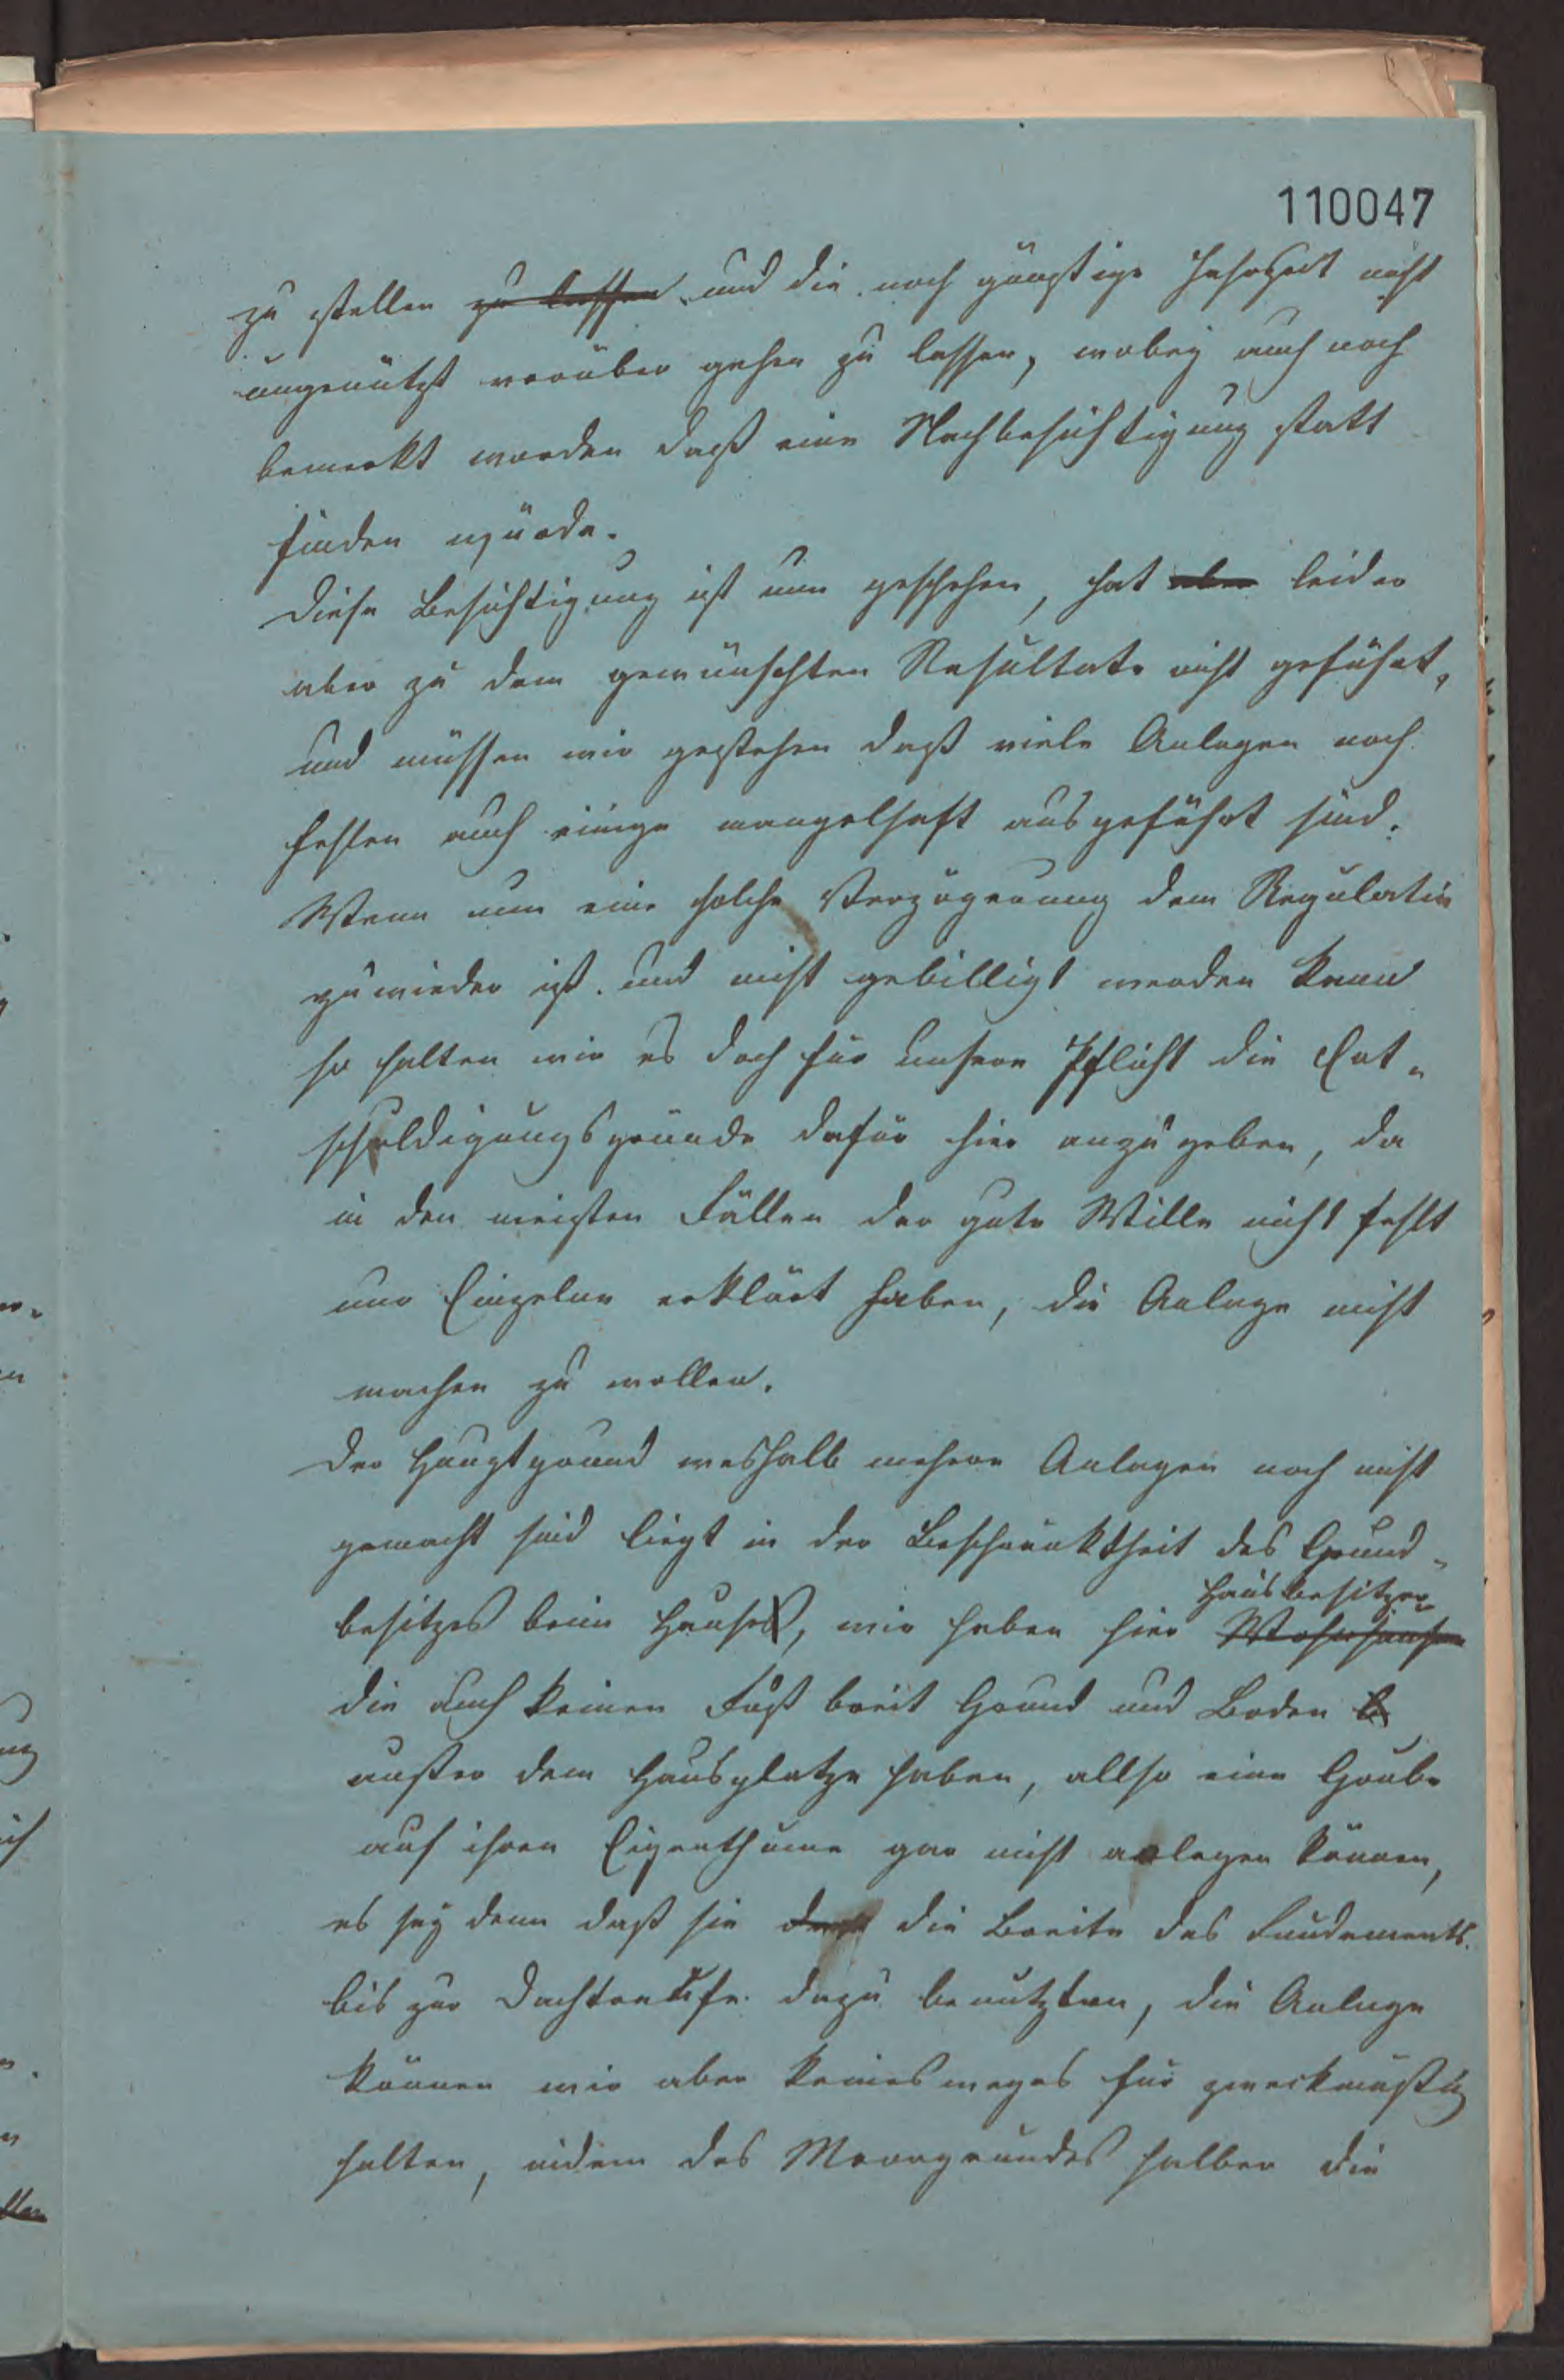 110047
zu stellen zu lassen und die noch günstige Jahrzeit nicht
ungenützt vorüber gehen zu lassen, wobey auch noch
bemerkt worden daß eine Nachbesichtigung statt
finden würde.
Diese Besichtigung ist nun geschehen, hat aber leider
aber zu dem gewünschten Resultate nicht geführt,
und müssen wir gestehen daß viele Anlagen noch
fehlen auch einige mangelhaft ausgeführt sind.
Wenn nun eine solche Verzögerung dem Regulativ
zuwieder ist und nicht gebilligt werden kann
so halten wir es doch für unsere Pflicht die Ent-
schuldigungsgründe dafür hier anzugeben, da
in den meisten Fällen der gute Wille nicht fehlt
nur Einzelne erklärt haben, die Anlage nicht
machen zu wollen.
Der Hauptgrund weshalb mehrere Anlagen noch nicht
gemacht sind liegt in der Beschränktheit des Grund-
besitzes beim Hause, wir haben hier Wohnhäuser
Hausbesitzer
die auch keinen Fuß breit Grund und Boden
außer dem Hausplatze haben, allso eine Grube
auf ihren Eigenthume gar nicht anlegen können,
es sey denn daß sie die Breite des Fundements
bis zur Dachtraufe dazu benutzten, die Anlage
können wir aber keinesweges für zweckmäßig
halten, indem des Moorgrundes halber die